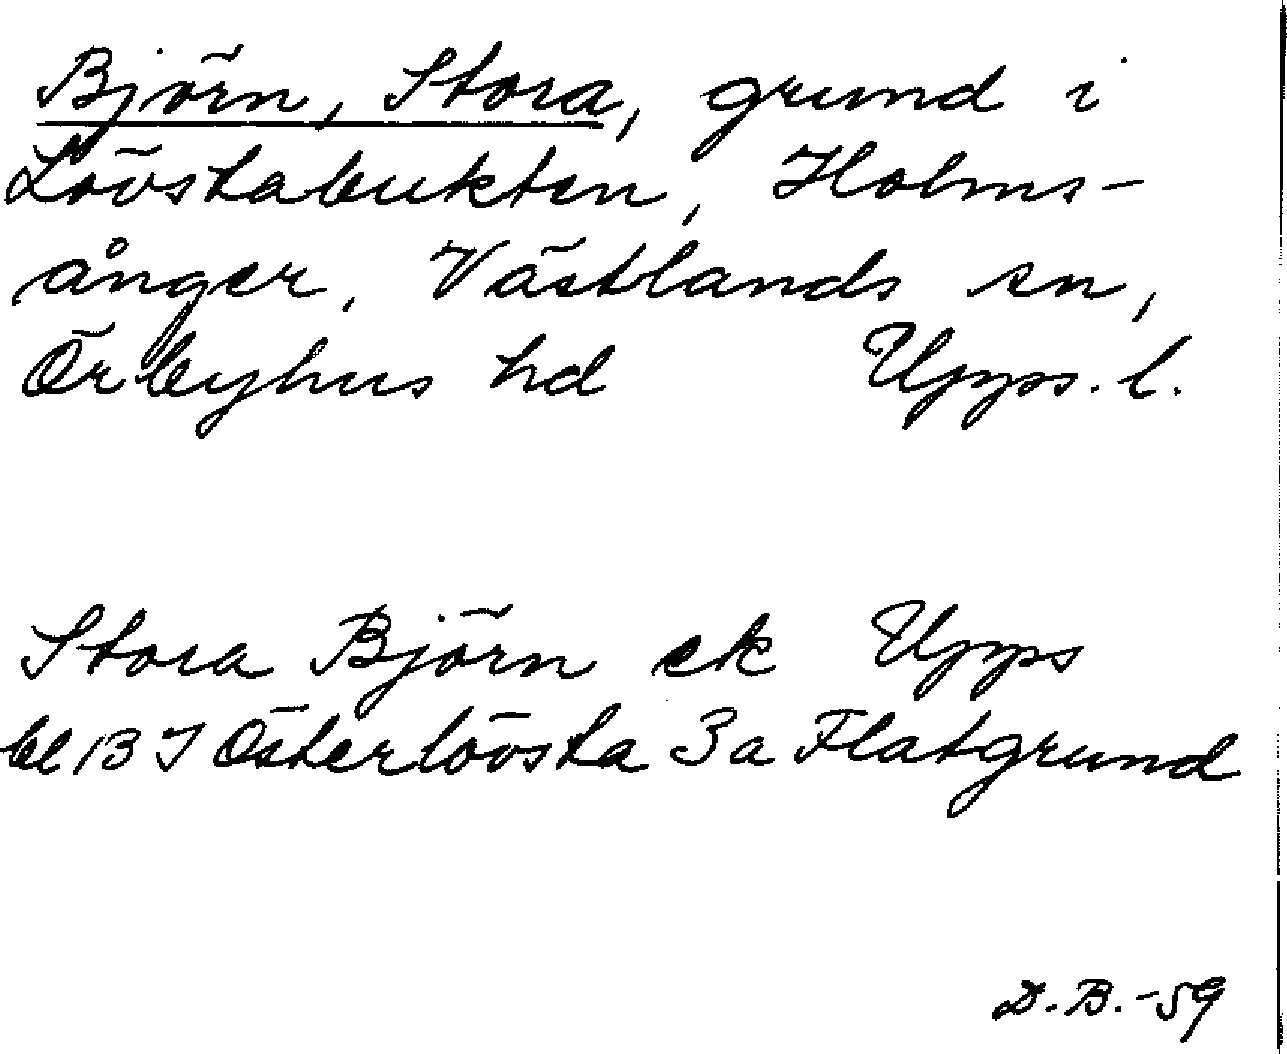 Björn, Stora, grund i
Lövstabukten, Holms-
ånger, Västlands sn,
Örbyhus hd Upps. l.
Stora Björn ek Upps
bl 13 I Österlövsta 3a Flatgrund
D.B.-59